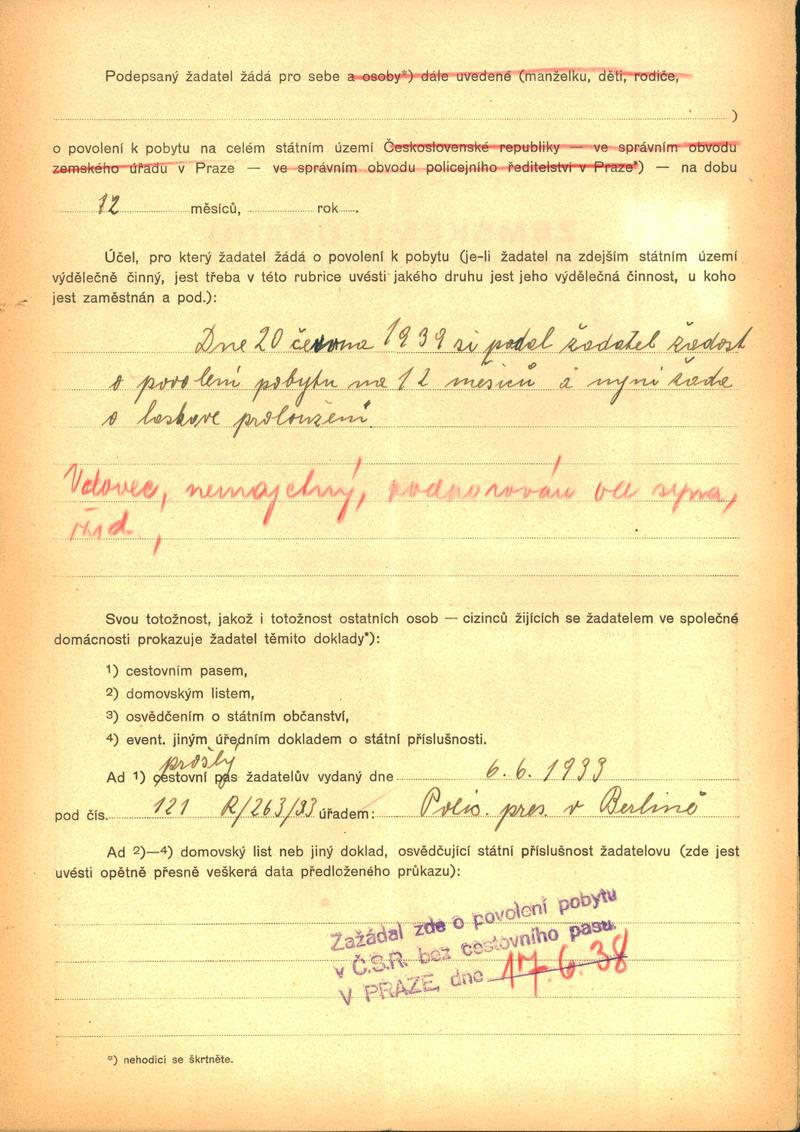 Podepsaný žadatel žádá pro sebe a osoby*) dále uvedené (manželku, děti, rodiče,
)
o povolení k pobytu na celém státním území Československé republiky — ve správním obvodu
zemského úřadu v Praze — ve správním obvodu policejního ředitelství v Praze*) — na dobu
12 měsíců, rok
Účel, pro který žadatel žádá o povolení k pobytu (je-li žadatel na zdejším státním území
výdělečně činný, jest třeba v této rubrice uvésti jakého druhu jest jeho výdělečná činnost, u koho
jest zaměstnán a pod.):
Dne 20 června 1939 si podal žadatel žádost
o povolení pobytu na 12 měsíců a nyní žádá
o laskavé prodloužení.
Vdovec, nemajetný, podporován od syna,
žid,
Svou totožnost, jakož i totožnost ostatních osob — cizinců žijících se žadatelem ve společné
domácnosti prokazuje žadatel těmito doklady*):
1) cestovním pasem,
2) domovským listem,
3) osvědčením o státním občanství,
4) event. jiným úředním dokladem o státní příslušnosti.
prošlý
Ad 1) cestovní pas žadatelův vydaný dne 6.6.1933
pod čís. 121 R/263/33 úřadem: Polic. pres. v Berlině
Ad 2)—4) domovský list neb jiný doklad, osvědčující státní příslušnost žadatelovu (zde jest
uvésti opětně přesně veškerá data předloženého průkazu):
Zažádal zde o povolení pobytu
v Č.S.R. bez cestovního pasu.
V PRAZE, dne 17.6.38
*) nehodící se škrtněte.